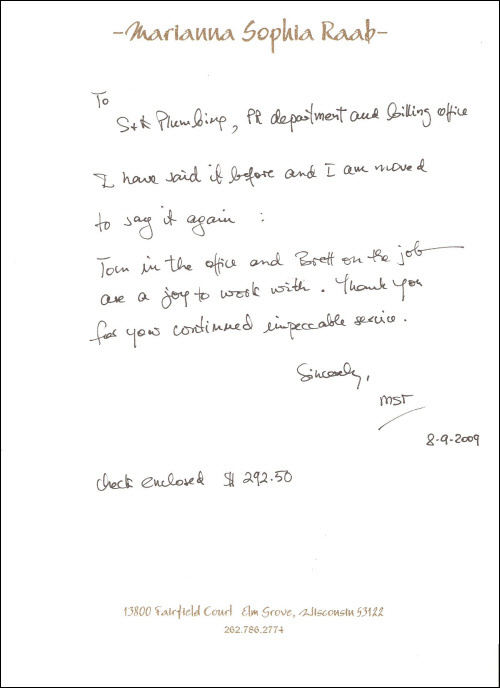 -Marianna Sophia Raab-
To
S+K Plumbing, PR department and billing office
I have said it before and I am moved
to say it again :
Tom in the office and Brett on the job
are a joy to work with. Thank you
for your continued impeccable service.
Sincerely,
MST
8-9-2009
check enclosed $ 292.50
13800 Fairfield Court Elm Grove, Wisconsin 53122
262.786.2774